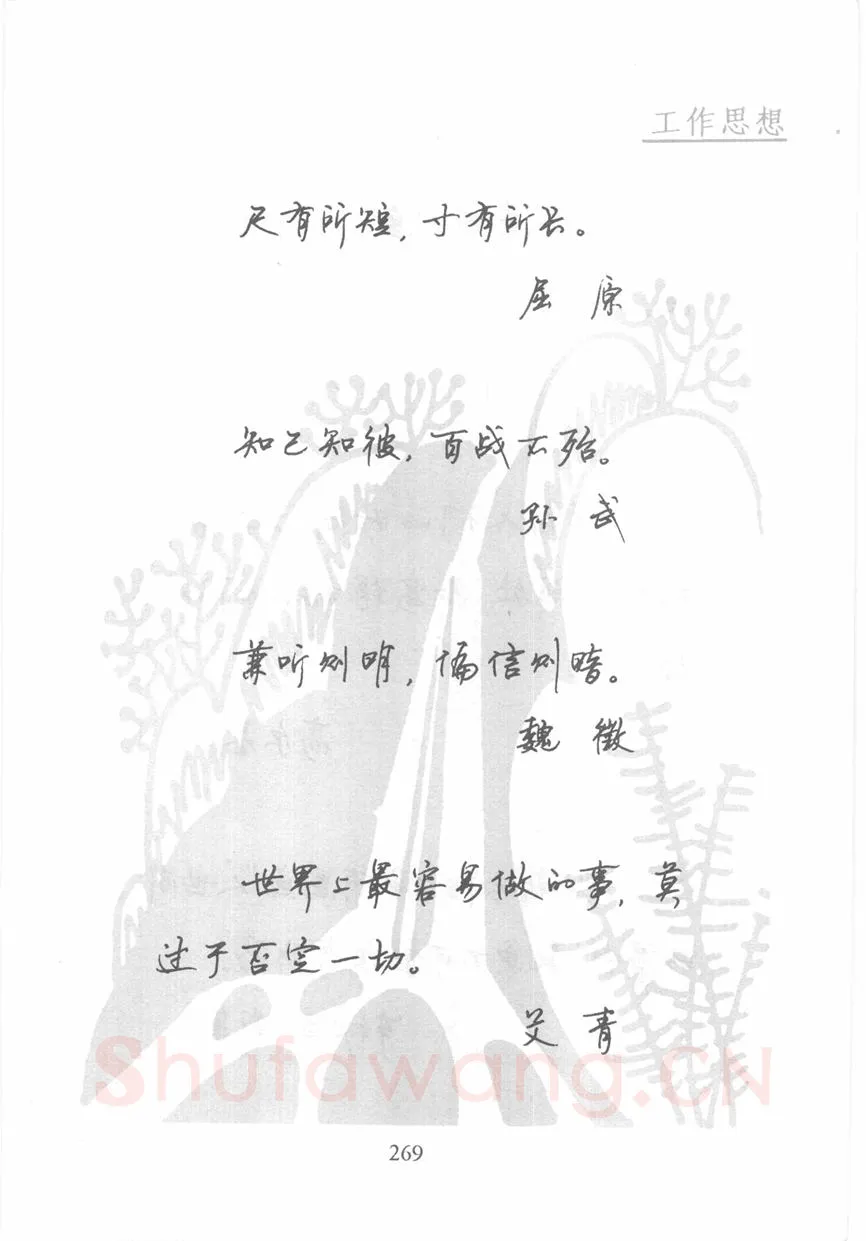 工作思想
尺有所短，寸有所长。
屈 原
知己知彼，百战不殆。
孙 武
兼听则明，偏信则暗。
魏 徵
世界上最容易做的事，莫
过于否定一切。
艾 青
Shufawang.CN
269